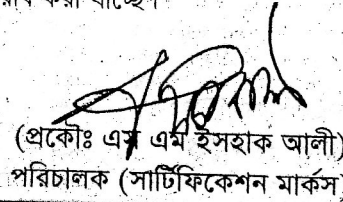 করা যাচ্ছে।
(প্রকৌঃ এস এম ইসহাক আলী)
পরিচালক (সার্টিফিকেশন মার্কস)